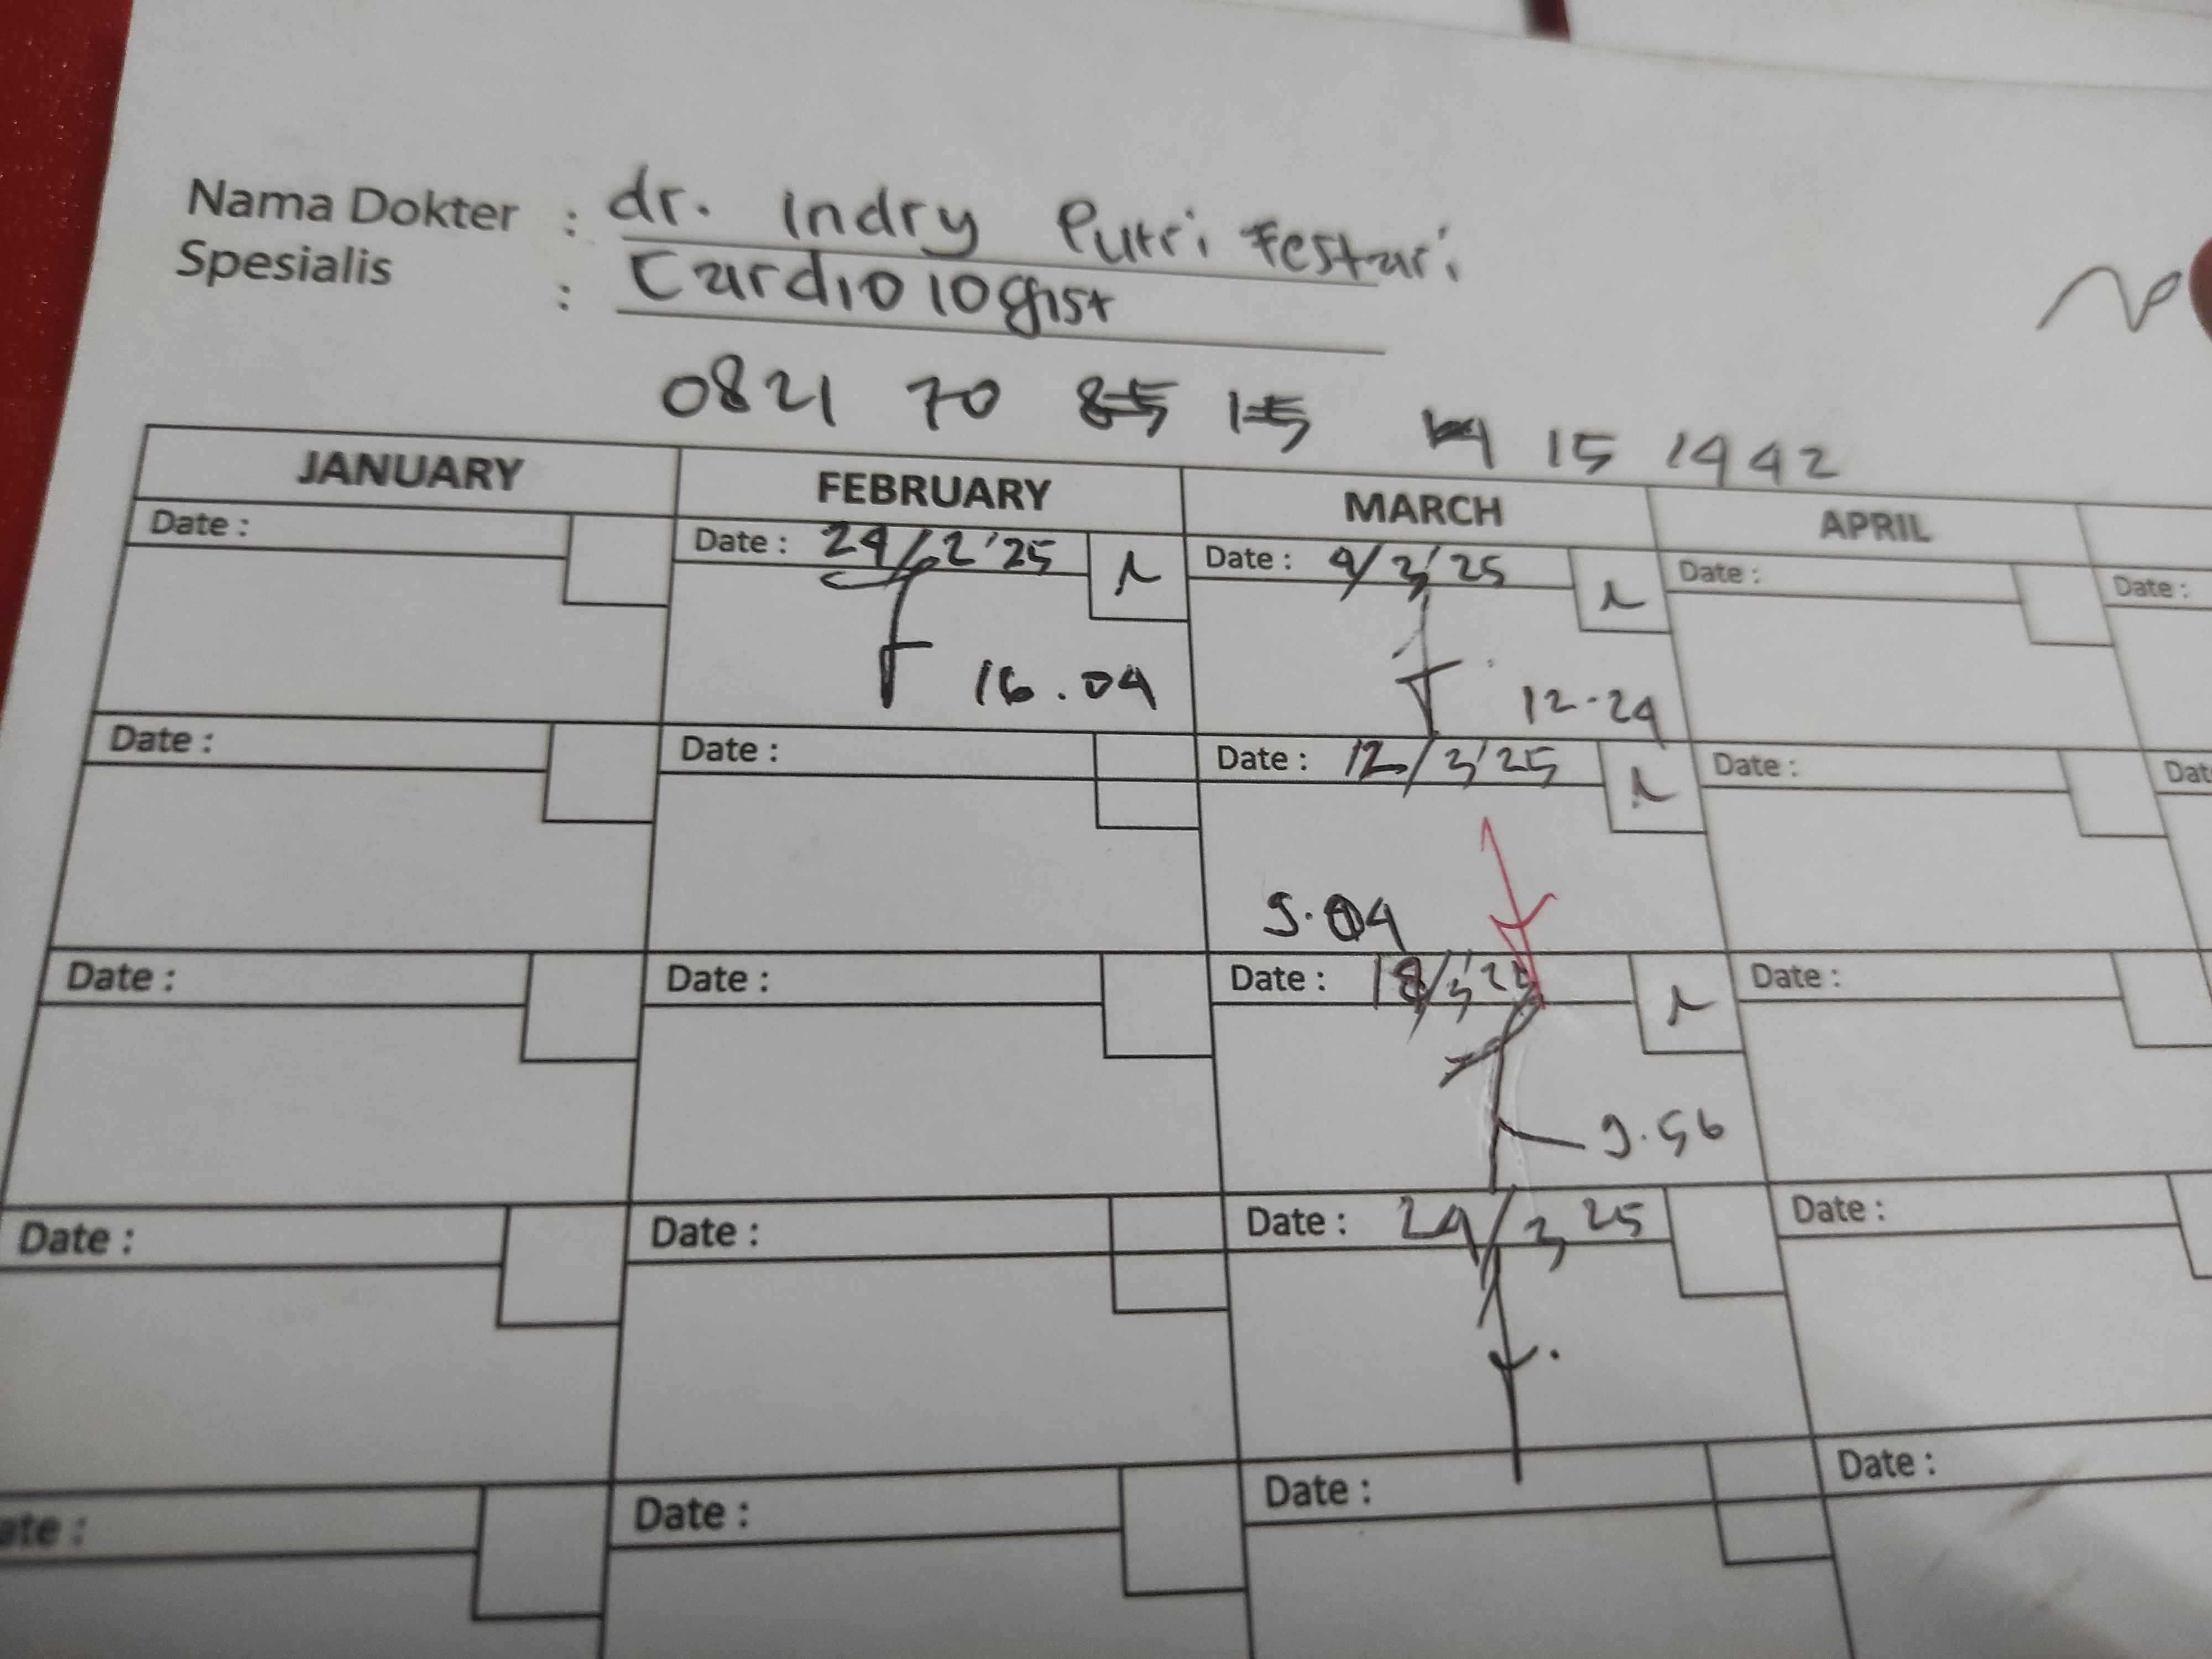 Nama Dokter : dr. Indry Putri Festari
Spesialis : Cardiologist
0821 70 85 15 15 1942
JANUARY FEBRUARY MARCH APRIL
Date : Date : 24/2'25 Date : 4/3'25 Date : Date :
16.04 12.24
Date : Date : Date : 12/3'25 Date : Dat
9.04
Date : Date : Date : 18/3'25 Date :
9.56
Date : Date : Date : 24/3 25 Date :
ate : Date : Date : Date :